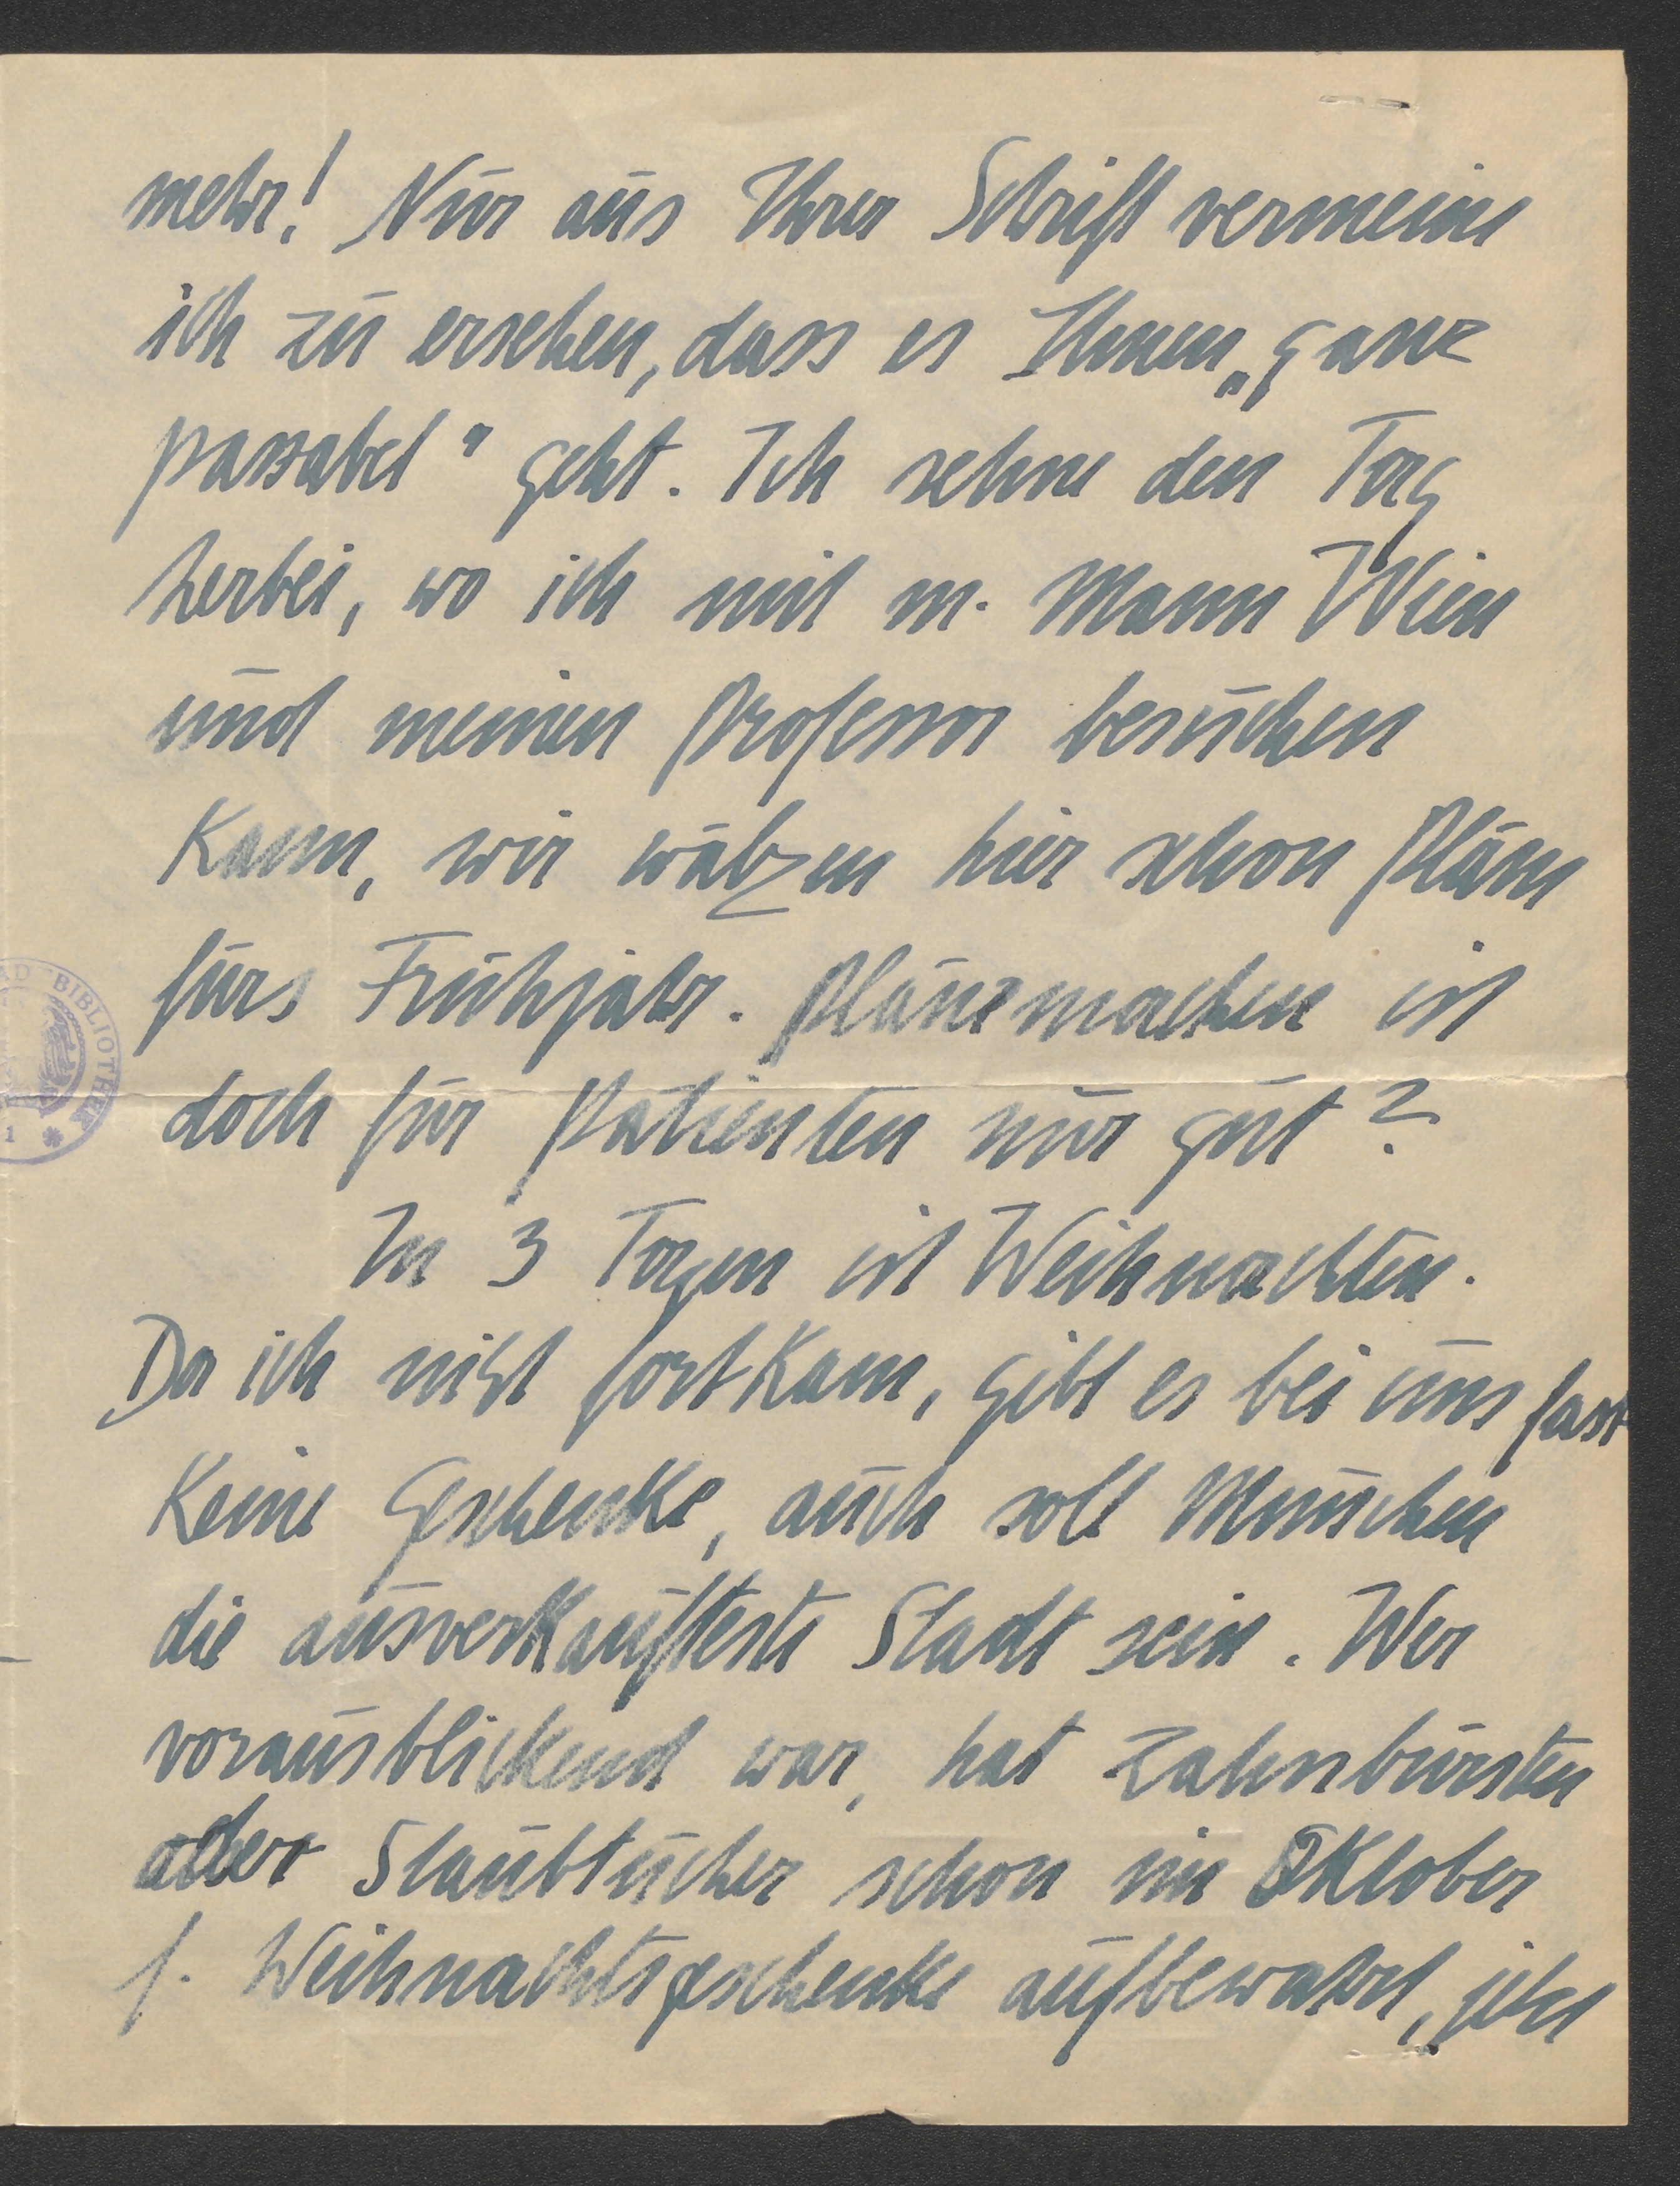 mehr! Nur aus Ihrer Schrift vermeine
ich zu ersehen, dass es Ihnen „ganz
passabel" geht. Ich sehne den Tag
herbei, wo ich mit m. Mann Wien
und meinen Professor besuchen
kann, wir wälzen hier schon Pläne
fürs Frühjahr. Plänemachen ist
doch für Patienten nur gut?
In 3 Tagen ist Weihnachten.
Da ich nicht fort kam, gibt es bei uns fast
keine Geschenke, auch soll München
die ausverkaufteste Stadt sein. Wer
vorausblickend war, hat Zahnbürsten
oder Staubtücher schon im Oktober
f. Weihnachtsgeschenke aufbewahrt, jetzt
BIBLIOTHEK